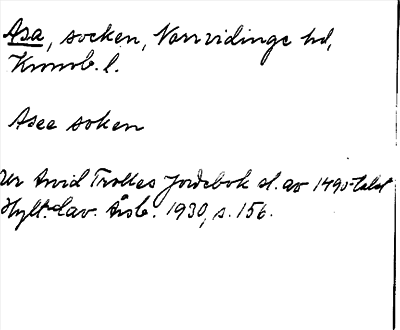 Asa, socken, Norrvidinge hd,
Kronob. l.
Asee soken
Ur Arvid Trolles Jordebok sl. av 1490-talet
Hylt.-Cav. Årsb. 1930, s. 156.